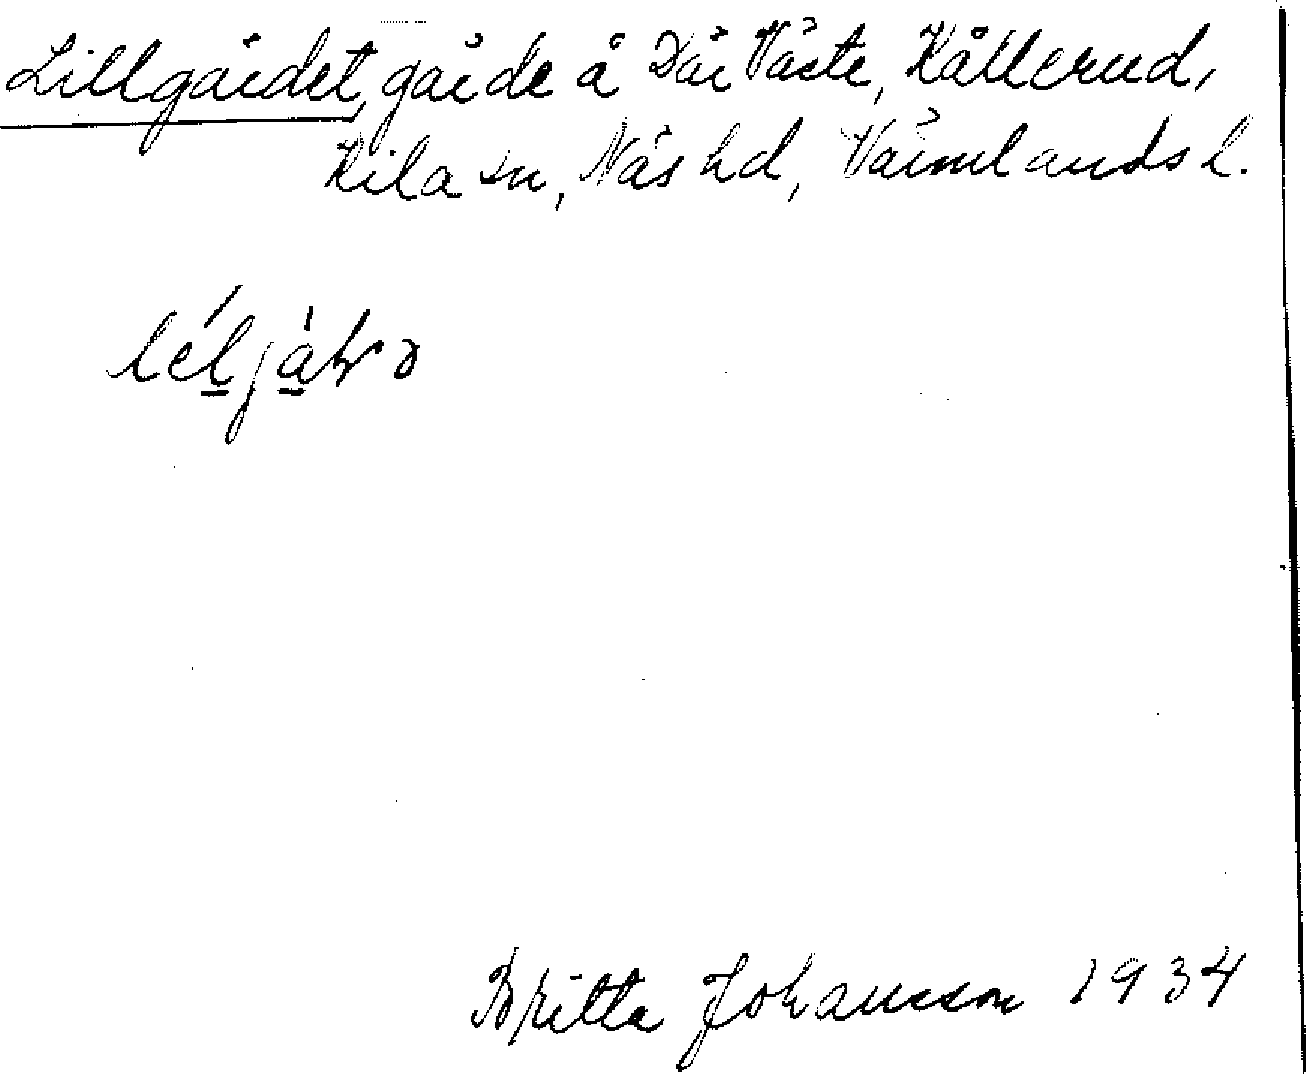 Lillgärdet, gärde å Där Väste, Kållerud,
Kila sn, Näs hd, Värmlands l.
Britta Johansson 1934